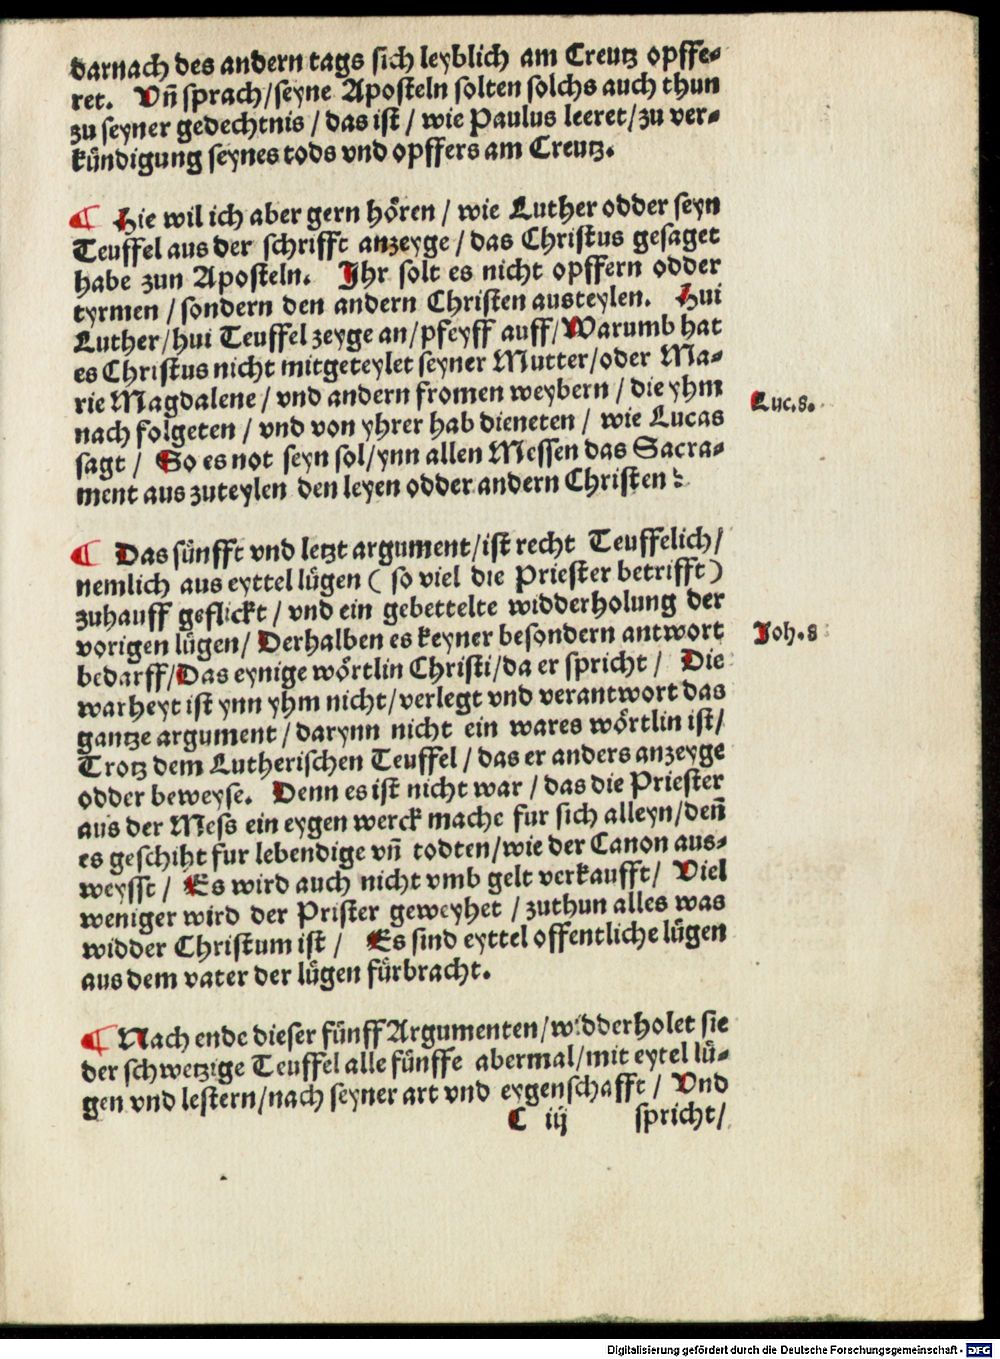 darnach des andern tags sich leyblich am Creutz opffe⸗
ret. Vñ sprach/seyne Aposteln solten solchs auch thun
zu seyner gedechtnis / das ist / wie Paulus leeret/zu ver⸗
kündigung seynes tods vnd opffers am Creutz.
¶ Hie wil ich aber gern hören / wie Luther odder seyn
Teuffel aus der schrifft anzeyge / das Christus gesaget
habe zun Aposteln. Ihr solt es nicht opffern odder
tyrmen / sondern den andern Christen austeylen. Hui
Luther/hui Teuffel zeyge an/pfeyff auff/Warumb hat
es Christus nicht mitgeteylet seyner Mutter/oder Ma⸗
rie Magdalene / vnd andern fromen weybern / die yhm
Luc.8.
nach folgeten / vnd von yhrer hab dieneten / wie Lucas
sagt / So es not seyn sol/ynn allen Messen das Sacra⸗
ment aus zuteylen den leyen odder andern Christen?
¶ Das fünfft vnd letzt argument/ist recht Teuffelich/
nemlich aus eyttel lügen ( so viel die Priester betrifft )
zuhauff geflickt / vnd ein gebettelte widderholung der
vorigen lügen/ Derhalben es keyner besondern antwort
Joh.8
bedarff/Das eynige wörtlin Christi/da er spricht / Die
warheyt ist ynn yhm nicht/verlegt vnd verantwort das
gantze argument / darynn nicht ein wares wörtlin ist/
Trotz dem Lutherischen Teuffel / das er anders anzeyge
odder beweyse. Denn es ist nicht war / das die Priester
aus der Mess ein eygen werck mache fur sich alleyn/deñ
es geschiht fur lebendige vñ todten/wie der Canon aus⸗
weysst / Es wird auch nicht vmb gelt verkaufft/ Viel
weniger wird der Prister geweyhet / zuthun alles was
widder Christum ist / Es sind eyttel offentliche lügen
aus dem vater der lügen fürbracht.
¶ Nach ende dieser fünff Argumenten/widderholet sie
der schwetzige Teuffel alle fünffe abermal/mit eytel lü⸗
gen vnd lestern/nach seyner art vnd eygenschafft / Vnd
C iij spricht/
Digitalisierung gefördert durch die Deutsche Forschungsgemeinschaft - DFG